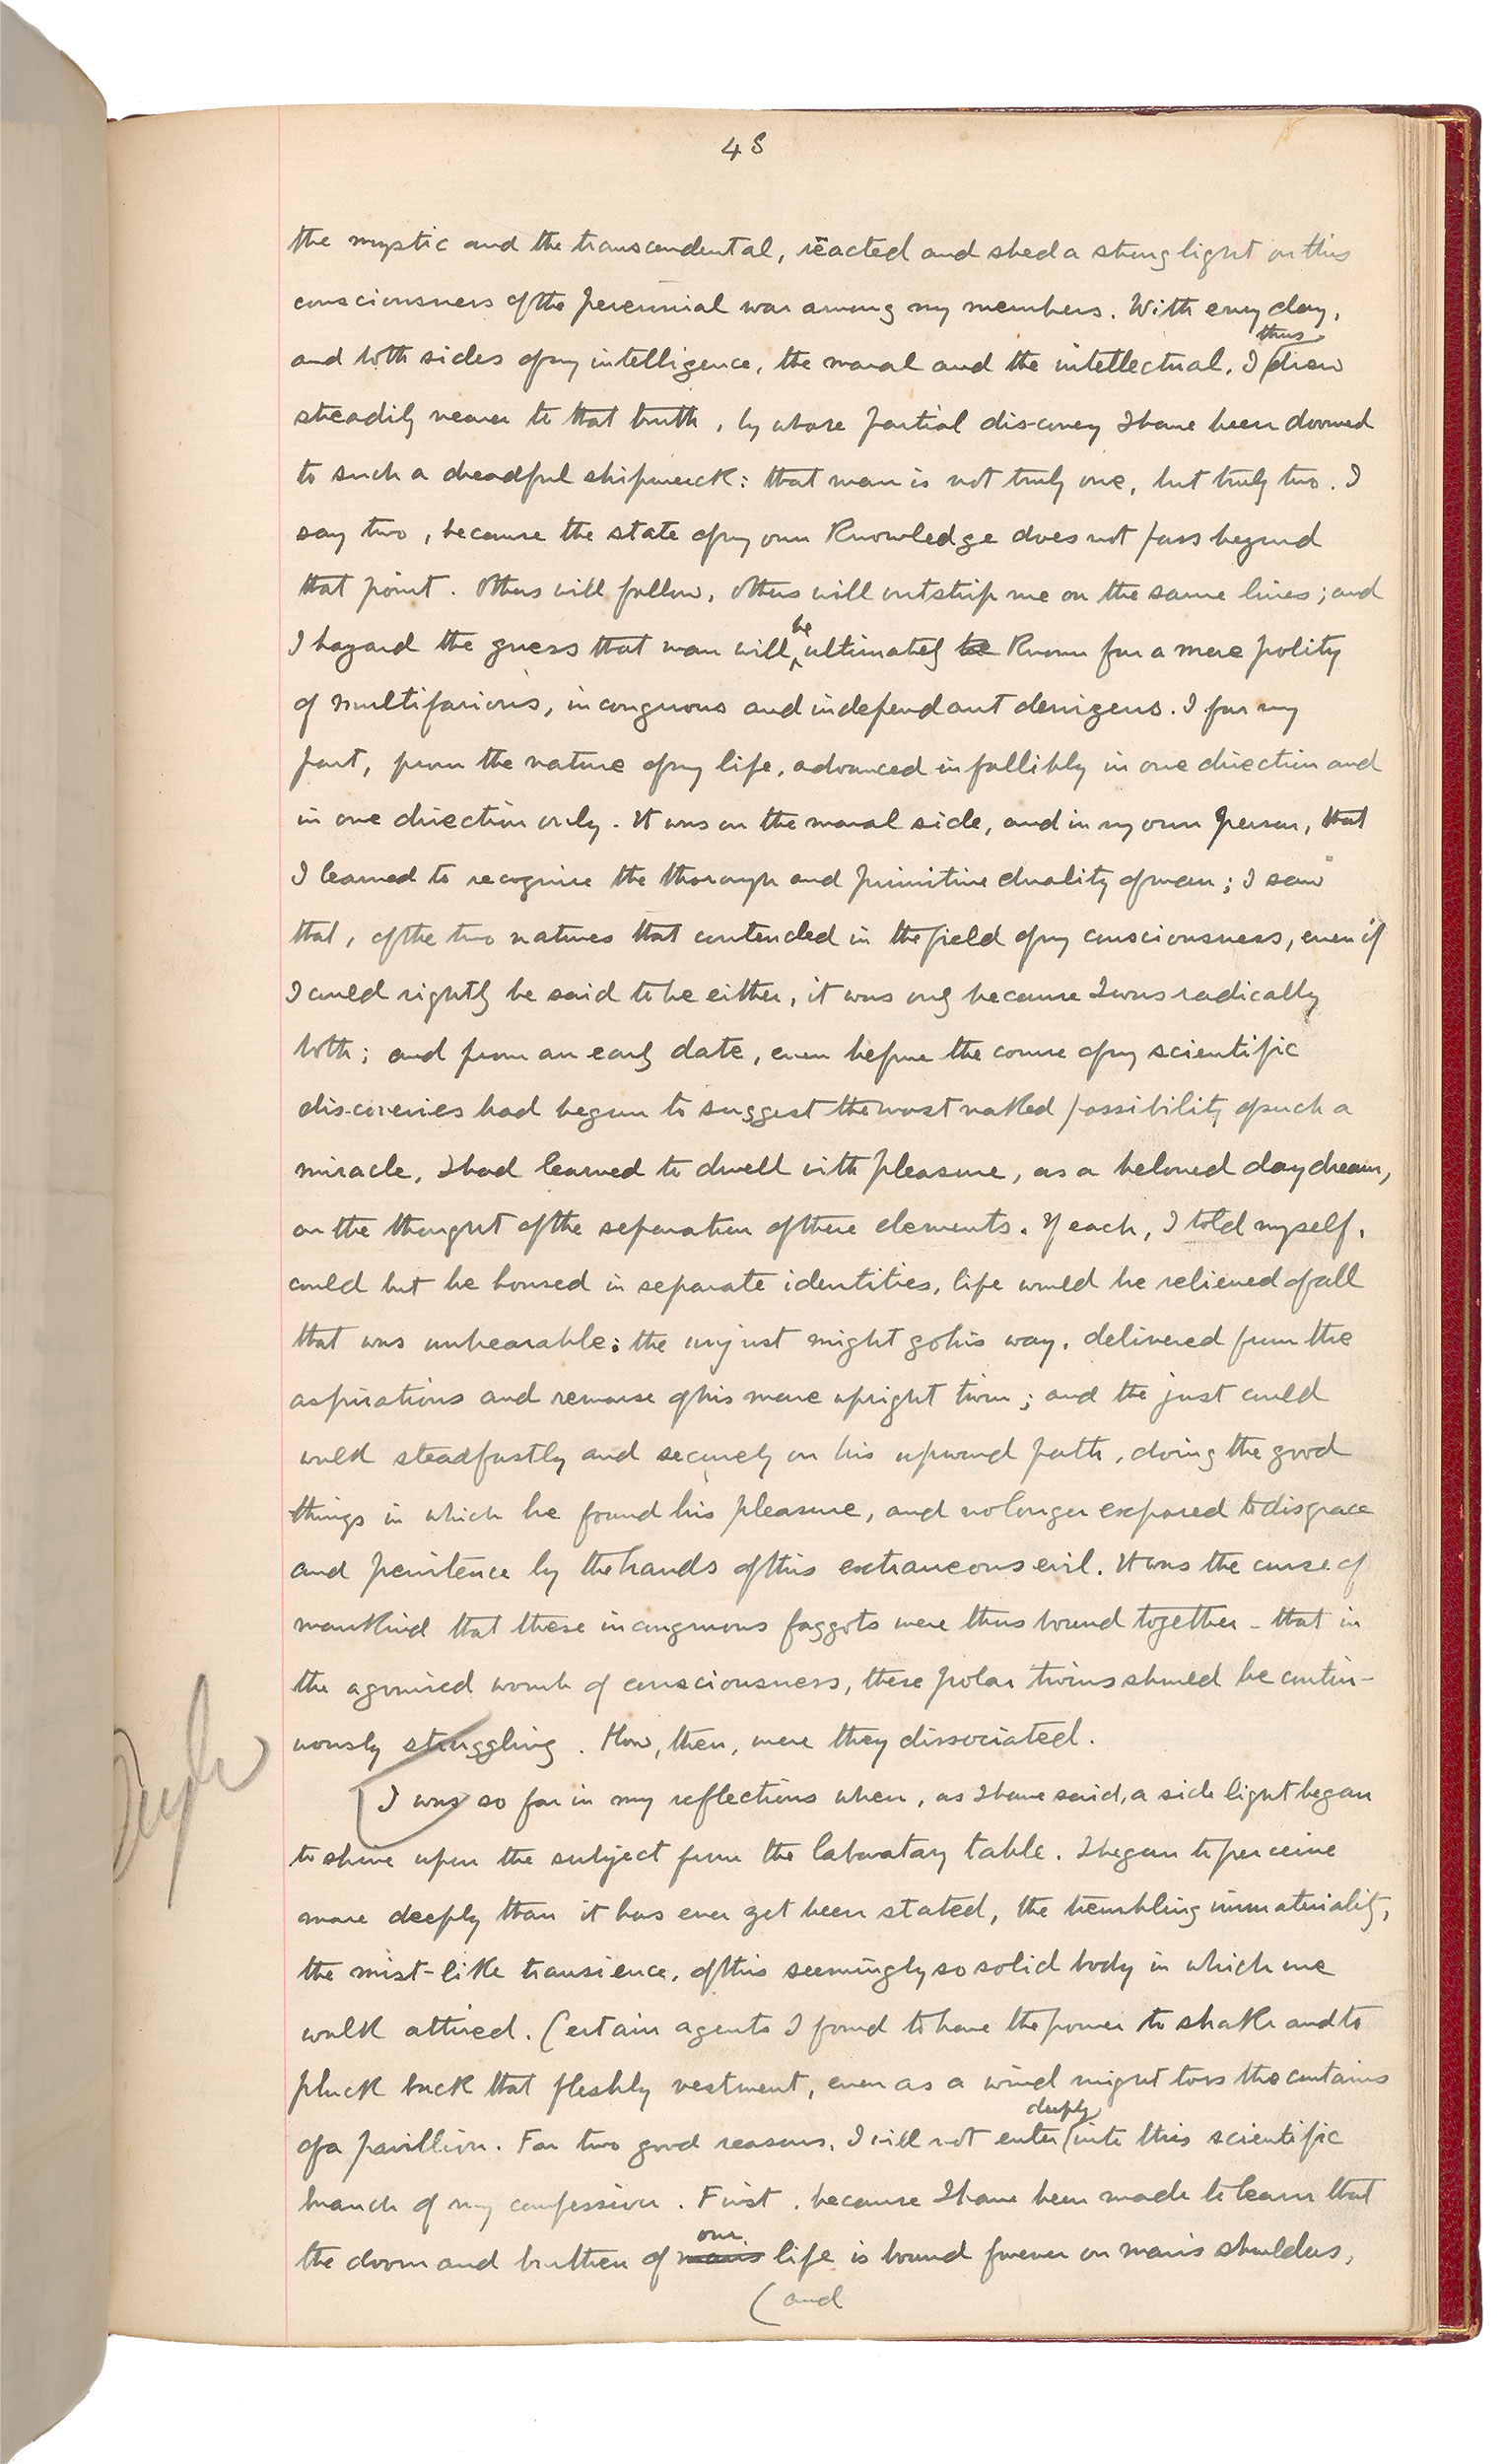 48
the mystic and the transcendental, reacted and shed a strong light on this
consciousness of the perennial war among my members. With every day,
thus
and both sides of my intelligence, the moral and the intellectual, I drew
steadily nearer to that truth, by whose partial discovery I have been doomed
to such a dreadful shipwreck: that man is not truly one, but truly two. I
say two, because the state of my own knowledge does not pass beyond
that point. Others will follow, others will outstrip me on the same lines; and
be
I hazard the guess that man will ultimately be known for a mere polity
of multifarious, incongruous and independant denizens. I for my
part, from the nature of my life, advanced infallibly in one direction and
in one direction only. It was on the moral side, and in my own person, that
I learned to recognise the thorough and primitive duality of man; I saw
that, of the two natures that contended in the field of my consciousness, even if
I could rightly be said to be either, it was only because I was radically
both; and from an early date, even before the course of my scientific
discoveries had begun to suggest the most naked possibility of such a
miracle, I had learned to dwell with pleasure, as a beloved daydream,
on the thought of the separation of these elements. If each, I told myself,
could but be housed in separate identities, life would be relieved of all
that was unbearable: the unjust might go his way, delivered from the
aspirations and remorse of his more upright twin; and the just could
walk steadfastly and securely on his upward path, doing the good
things in which he found his pleasure, and no longer exposed to disgrace
and penitence by the hands of this extraneous evil. It was the curse of
mankind that these incongruous faggots were thus bound together - that in
the agonised womb of consciousness, these polar twins should be contin-
uously struggling. How, then, were they dissociated.
I was so far in my reflections when, as I have said, a side light began
to shine upon the subject from the laboratory table. I began to perceive
more deeply than it has ever yet been stated, the trembling immateriality,
the mist-like transience, of this seemingly so solid body in which we
walk attired. Certain agents I found to have the power to shake and to
pluck back that fleshly vestment, even as a wind might toss the curtains
deeply
of a pavillion. For two good reasons, I will not enter into this scientific
branch of my confession. First, because I have been made to learn that
our
the doom and burthen of man's life is bound forever on man's shoulders,
(and